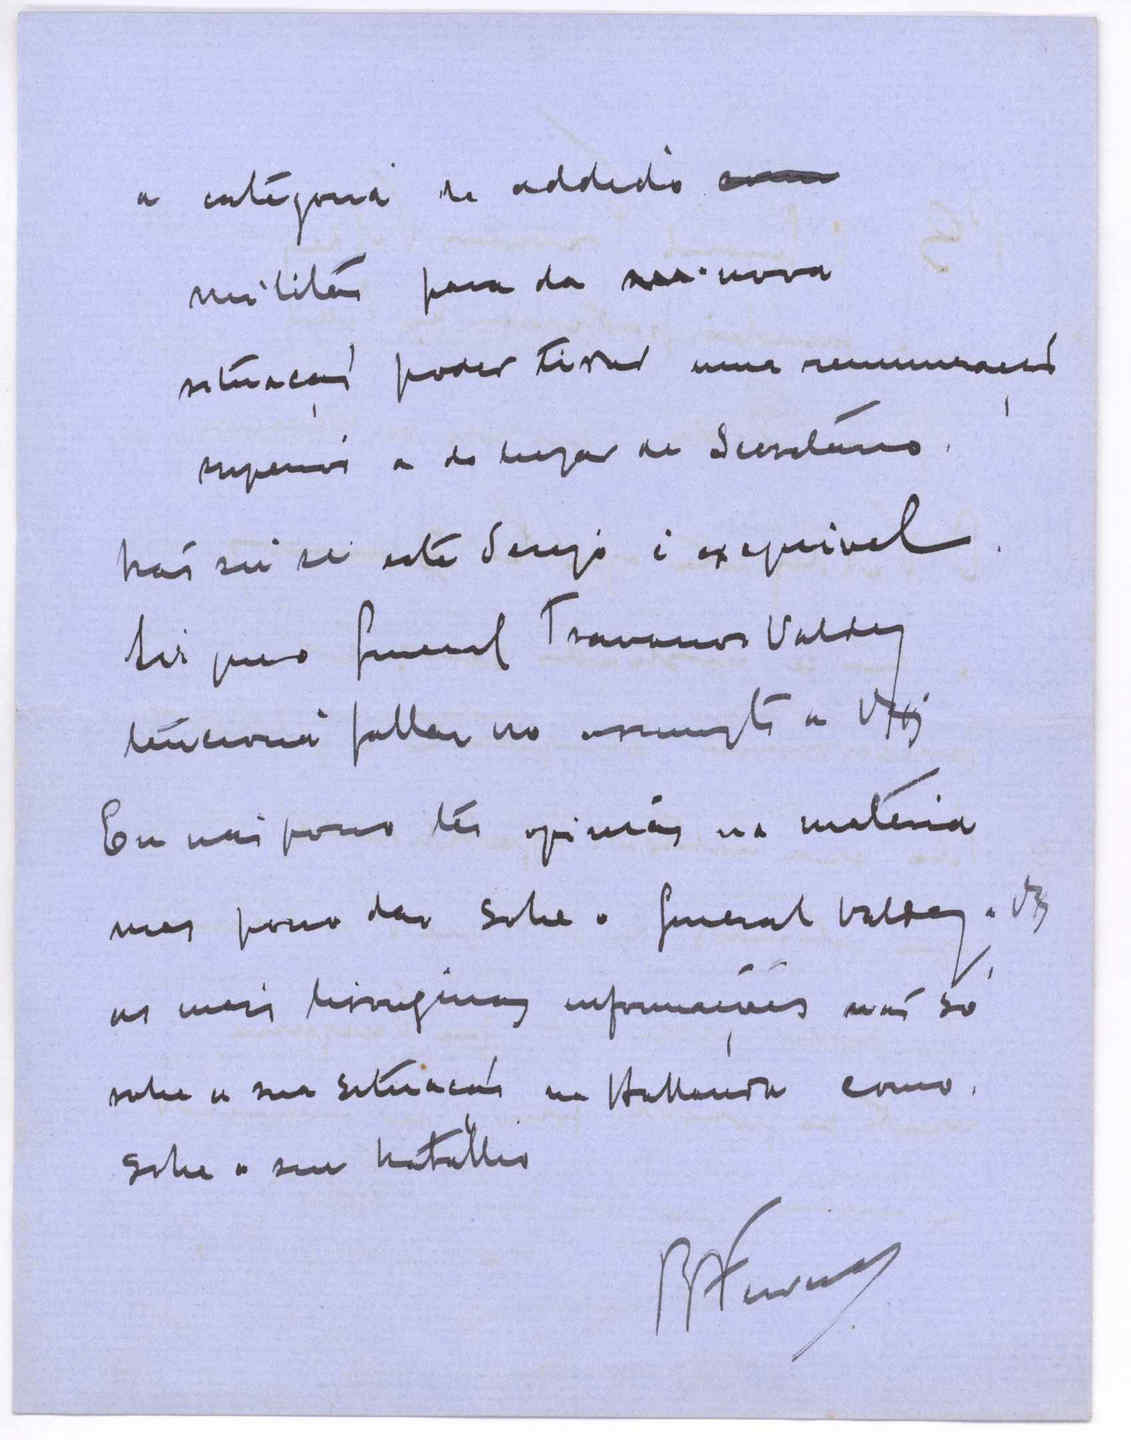 a categoria de addido
militar para da nova
situação poder tirar uma remuneração
superior a do lugar de Secretário.
Não sei se este desejo é exequivel.
Sei que o General Travassos Valdez
tenciona fallar no assumpto a VEx
Eu não posso ter opinião na matéria
mas posso dar sobre o General Valdez a VEx
as mais lisongeiras informações não só
sobre a sua situação na Hollanda como
sobre o seu trabalho